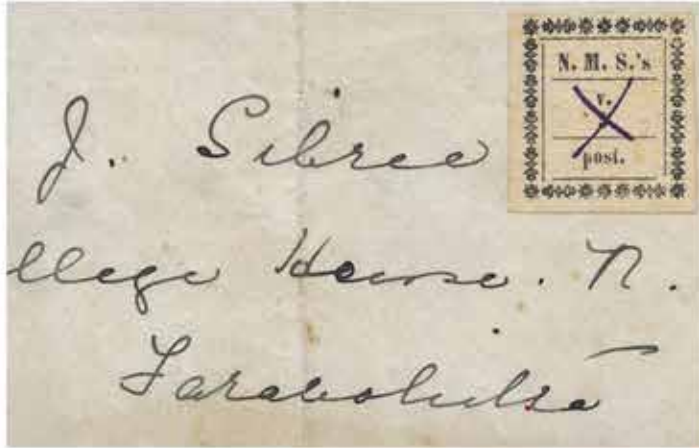 N. M. S.'s
v.
post.
J. Sibree
llege House. N.
Faravohitra